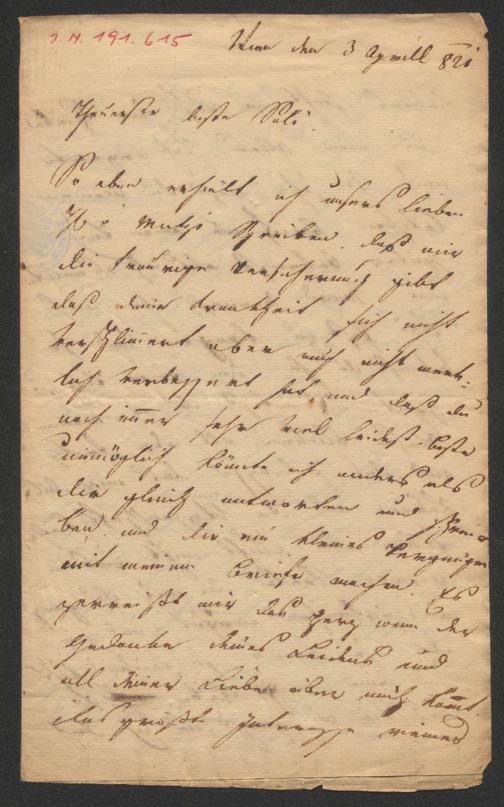 J.N. 191.615
Wien den 3 Aprill 821
Theuerste beste Sali
So eben erhielt ich unsers lieben
Schreiben, daß mir
die traurige Versicherung gibt
daß deine Krankheit sich nicht
verschlimert aber auch nicht merk-
lich verbessert hat und daß du
noch imer sehr viel leidest. beste
unmöglich könnte ich anders als
dir gleich antworten und schrei-
ben und dir ein kleines Vergnügen
mit meinem Briefe machen. Es
zerreißt mir das Herz wenn der
Gedanke deines Leidens und
all deiner Liebe über mich komt.
das größte Interesse meines